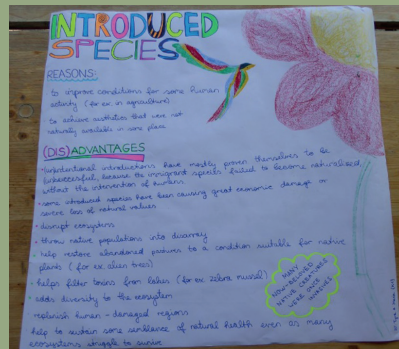 INTRODUCED
SPECIES
REASONS:
to improve conditions for some human
activity (for ex. in agriculture)
to achieve aesthetics that were not
naturally available in some place
(DIS)ADVANTAGES
• unintentional introductions have mostly proven themselves to be
unsuccessful, because the immigrant species failed to become naturalized,
without the intervention of humans
• some introduced species have been causing great economic damage or
severe loss of natural values
• disrupt ecosystems
• throw native populations into disarray
• help restore abandoned pastures to a condition suitable for native
plants (for ex. alien trees)
• helps filter toxins from lakes (for ex. zebra mussel)
• adds diversity to the ecosystem
replenish human-damaged regions
help to sustain some semblance of natural health even as many
ecosystems struggle to survive
MANY
NOW-BELOVED
NATIVE CREATURES
WERE ONCE
INVADERS